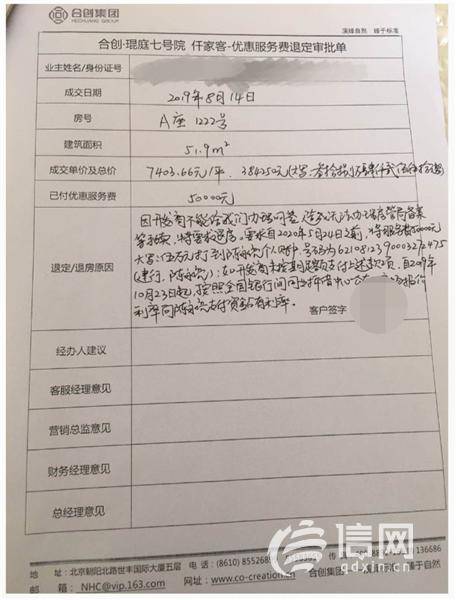 合创集团
HECHUANG GROUP
演绎自然 臻于标准
合创·琨庭七号院 仟家客-优惠服务费退定审批单
业主姓名/身份证号
成交日期 2019年8月14日
房号 A座1222号
建筑面积 51.9m²
成交单价及总价 7403.66元/平. 384250元
已付优惠服务费 50000元
退定/退房原因
因开发商不能给我们办理网签,
等手续,特要求退房,要求自2020年5月24日之前,将服务费50000元
大写:伍万元打到 个人账户,号码为
(建行, ):如开发商未按期足额支付上述款项,自2019年
10月23日起,按照全国银行间同业拆借中心 报价
利率向 支付资金占有利率.
客户签字
经办人建议
客服经理意见
营销总监意见
财务经理意见
总经理意见
地址:北京朝阳北路世丰国际大厦五层 电话:(8610)
136686
邮箱:NHC@vip.163.com 网址:www.co-creation.cn 合创集团 臻于自然
信网
gdxin.cn